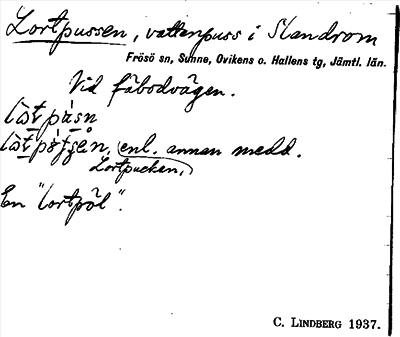 Lortpussen, vattenpuss i Slandrom
Frösö sn, Sunne, Ovikens o. Hallens tg, Jämtl. län.
Vid fäbodvägen.
enl. annan medd.
Lortpucken,
En "lortpöl".
C. LINDBERG 1937.